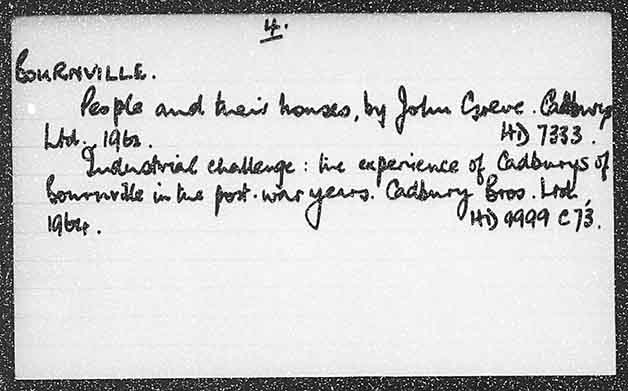 4.
BOURNVILLE.
People and their houses, by John Greve. Cadbury
Ltd. 1962. HD 7333.
Industrial challenge: the experience of Cadburys of
Bournville in the post-war years. Cadbury Bros. Ltd.,
1964. HD 9999 C73.